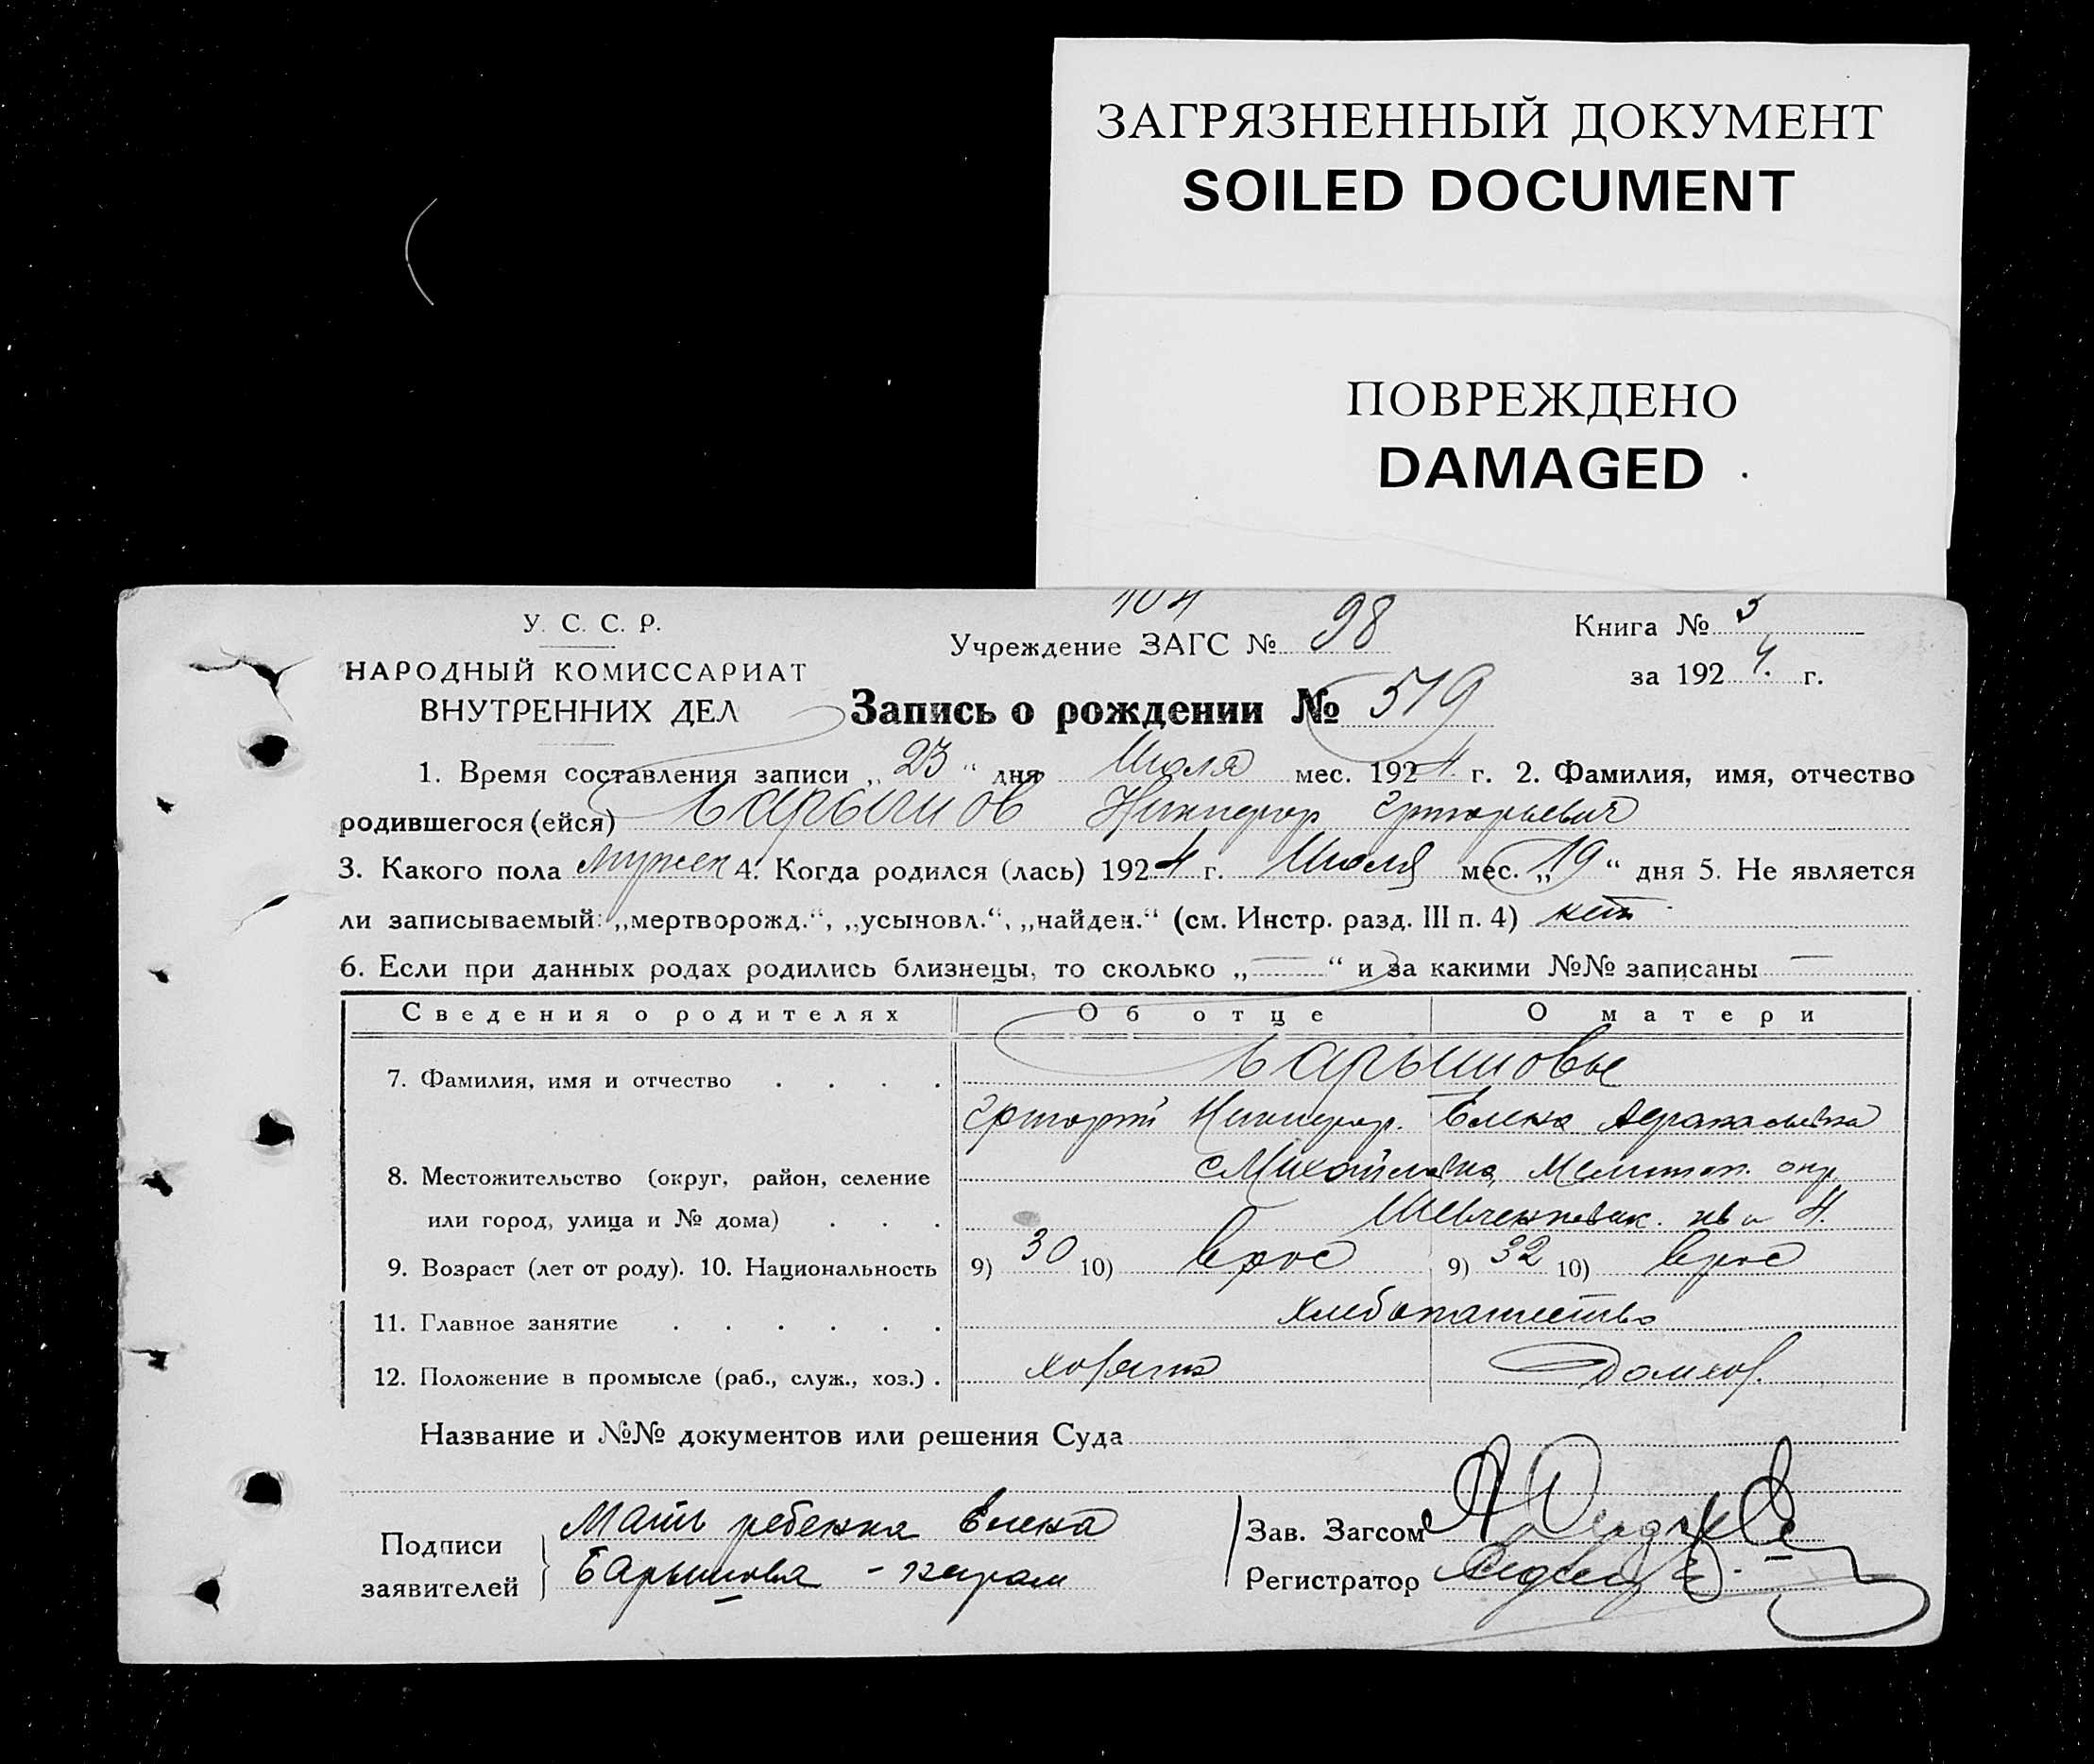 ЗАГРЯЗНЕННЫЙ ДОКУМЕНТ
SOILED DOCUMENT
ПОВРЕЖДЕНО
DAMAGED
У. С. С. Р.
НАРОДНЫЙ КОМИССАРИАТ
ВНУТРЕННИХ ДЕЛ
104
Учреждение ЗАГС № 98
Книга № 3
за 1924 г.
Запись о рождении № 519
1. Время составления записи „23“ дня Июля мес. 1924 г. 2. Фамилия, имя, отчество
родившегося (ейся) Барышов Никифор Григорьевич
3. Какого пола мужск 4. Когда родился (лась) 1924 г. Июля мес. „19“ дня 5. Не является
ли записываемый: „мертворожд.“, „усыновл.“, „найден.“ (см. Инстр. разд. III п. 4) нет
6. Если при данных родах родились близнецы, то сколько „—“ и за какими №№ записаны —
Сведения о родителях Об отце О матери
7. Фамилия, имя и отчество . . . . Барышовы
Григорий Никифор. Елена
8. Местожительство (округ, район, селение Михайловка, Мелитоп. окр.
или город, улица и № дома) . . .
9. Возраст (лет от роду). 10. Национальность 9) 30 10) 9) 32 10)
11. Главное занятие . . . . . . хлебопашество
12. Положение в промысле (раб., служ., хоз.) . хозяин домхоз.
Название и №№ документов или решения Суда
Подписи заявителей Мать ребенка Елена
Барышова - неграм
Зав. Загсом
Регистратор